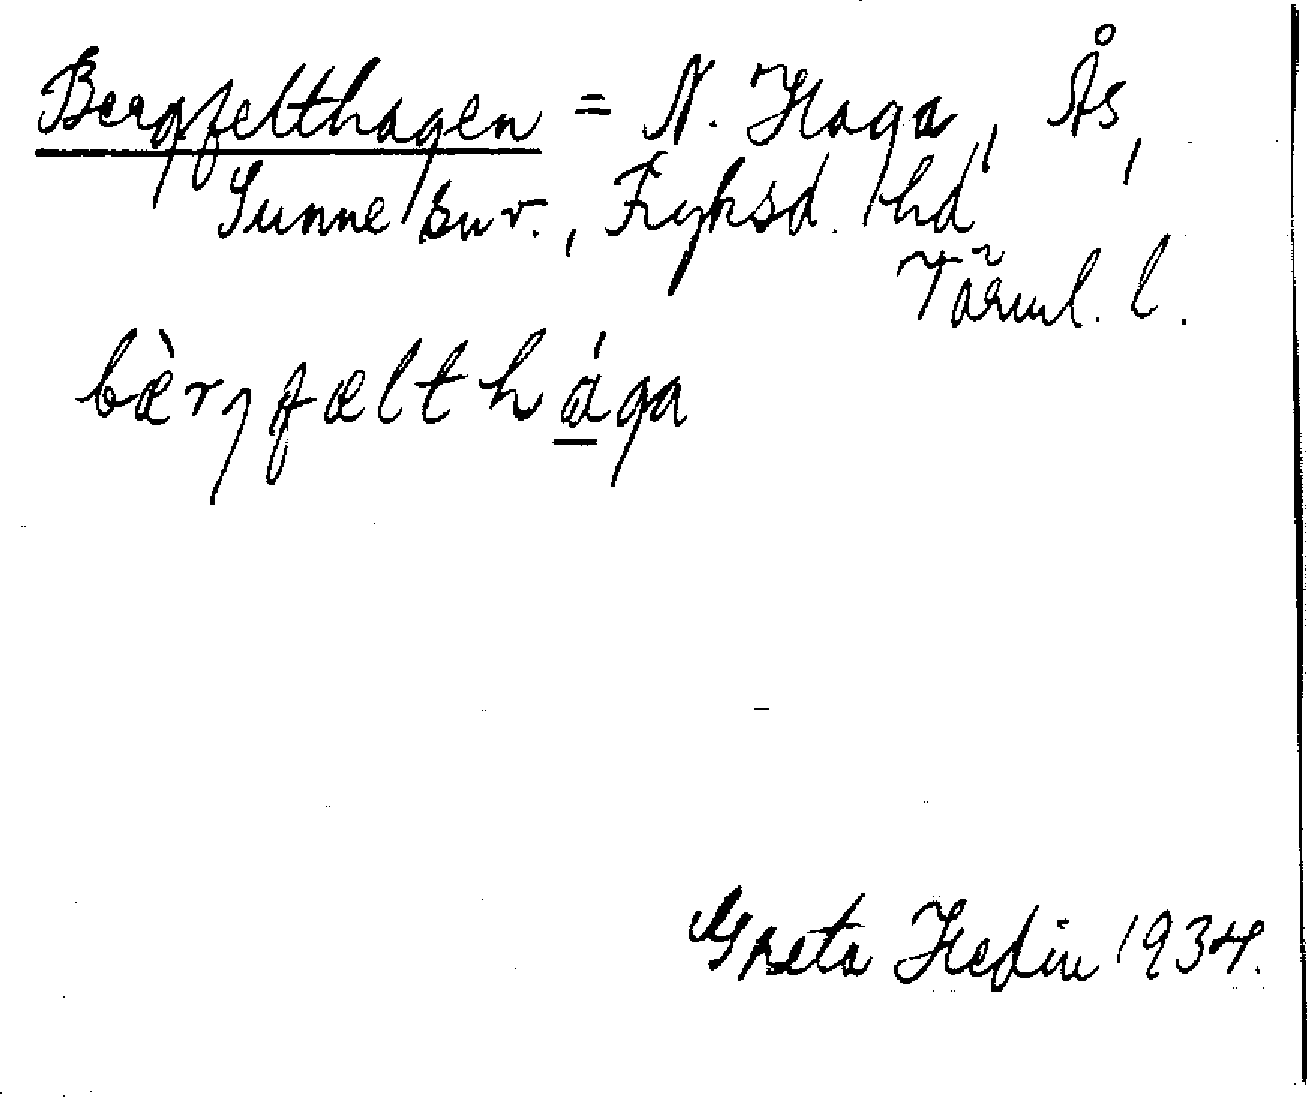 Bergfelthagen = N. Haga, Ås,
Sunne snr., Fryksd. hd
Värml. l.
bæ̀rgfælthága
Greta Hedin 1934.